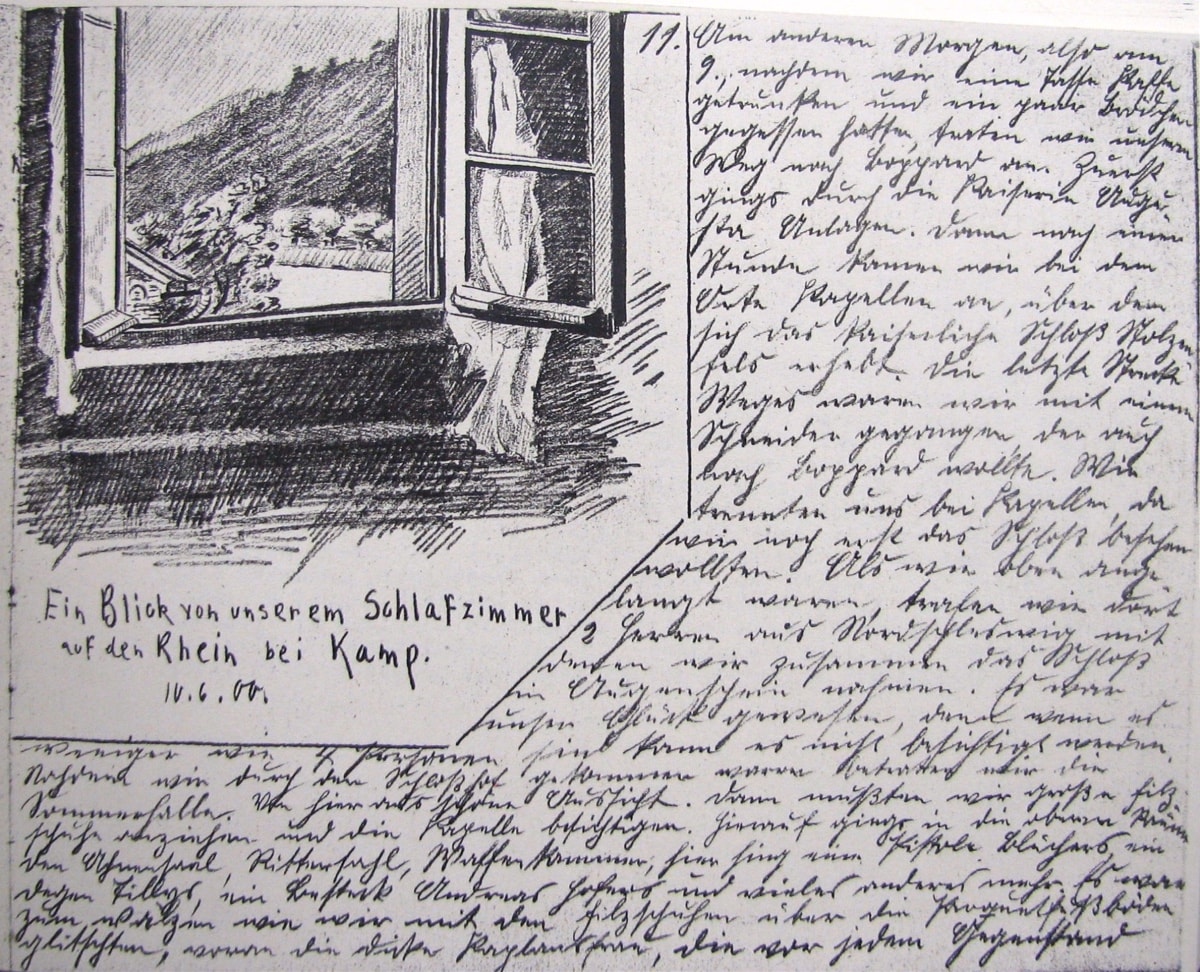 11. Am anderen Morgen, also am
9., nachdem wir eine Tasse Kaffe
getrunken und ein paar Brödchen
gegessen hatten, traten wir unseren
Weg nach Boppard an. Zuerst
gings durch die Kaiserin Augu-
sta Anlagen. Dann nach einer
Stunde kamen wir bei dem
Orte Kapellen an, über dem
sich das Kaiserliche Schloß Stolzen-
fels erhebt. Die letzte Strecke
Weges waren wir mit einem
Schneider gegangen der auch
nach Boppard wollte. Wir
trennten uns bei Kapellen, da
wir noch erst das Schloß besehen
wollten. Als wir oben ange-
langt waren, trafen wir dort
2 Herren aus Nordschleswig mit
denen wir zusammen das Schloß
in Augenschein nahmen. Es war
unser Glück gewesen, denn wenn es
weniger wie 4 Personen sind kann es nicht besichtigt werden.
Nachdem wir durch den Schloßhof gekommen waren betraten wir die
Sommerhalle. Von hier aus schöne Aussicht. Dann mußten wir große Filz-
schuhe anziehen und die Kapelle besichtigen. Hierauf gings in die oberen Räume
den Ahnensaal, Rittersahl, Waffenkammer, hier hing eine Pistole Blüchers, ein
Degen Tillys, ein Besteck Andreas Hofers und vieles anderes mehr. Es war
zum walzen wie wir mit den Filzschuhen über die Parquettfußböden
glitschten, voran die dicke Kaplansfrau, die vor jedem Gegenstand
Ein Blick von unserem Schlafzimmer
auf den Rhein bei Kamp.
10.6.00.